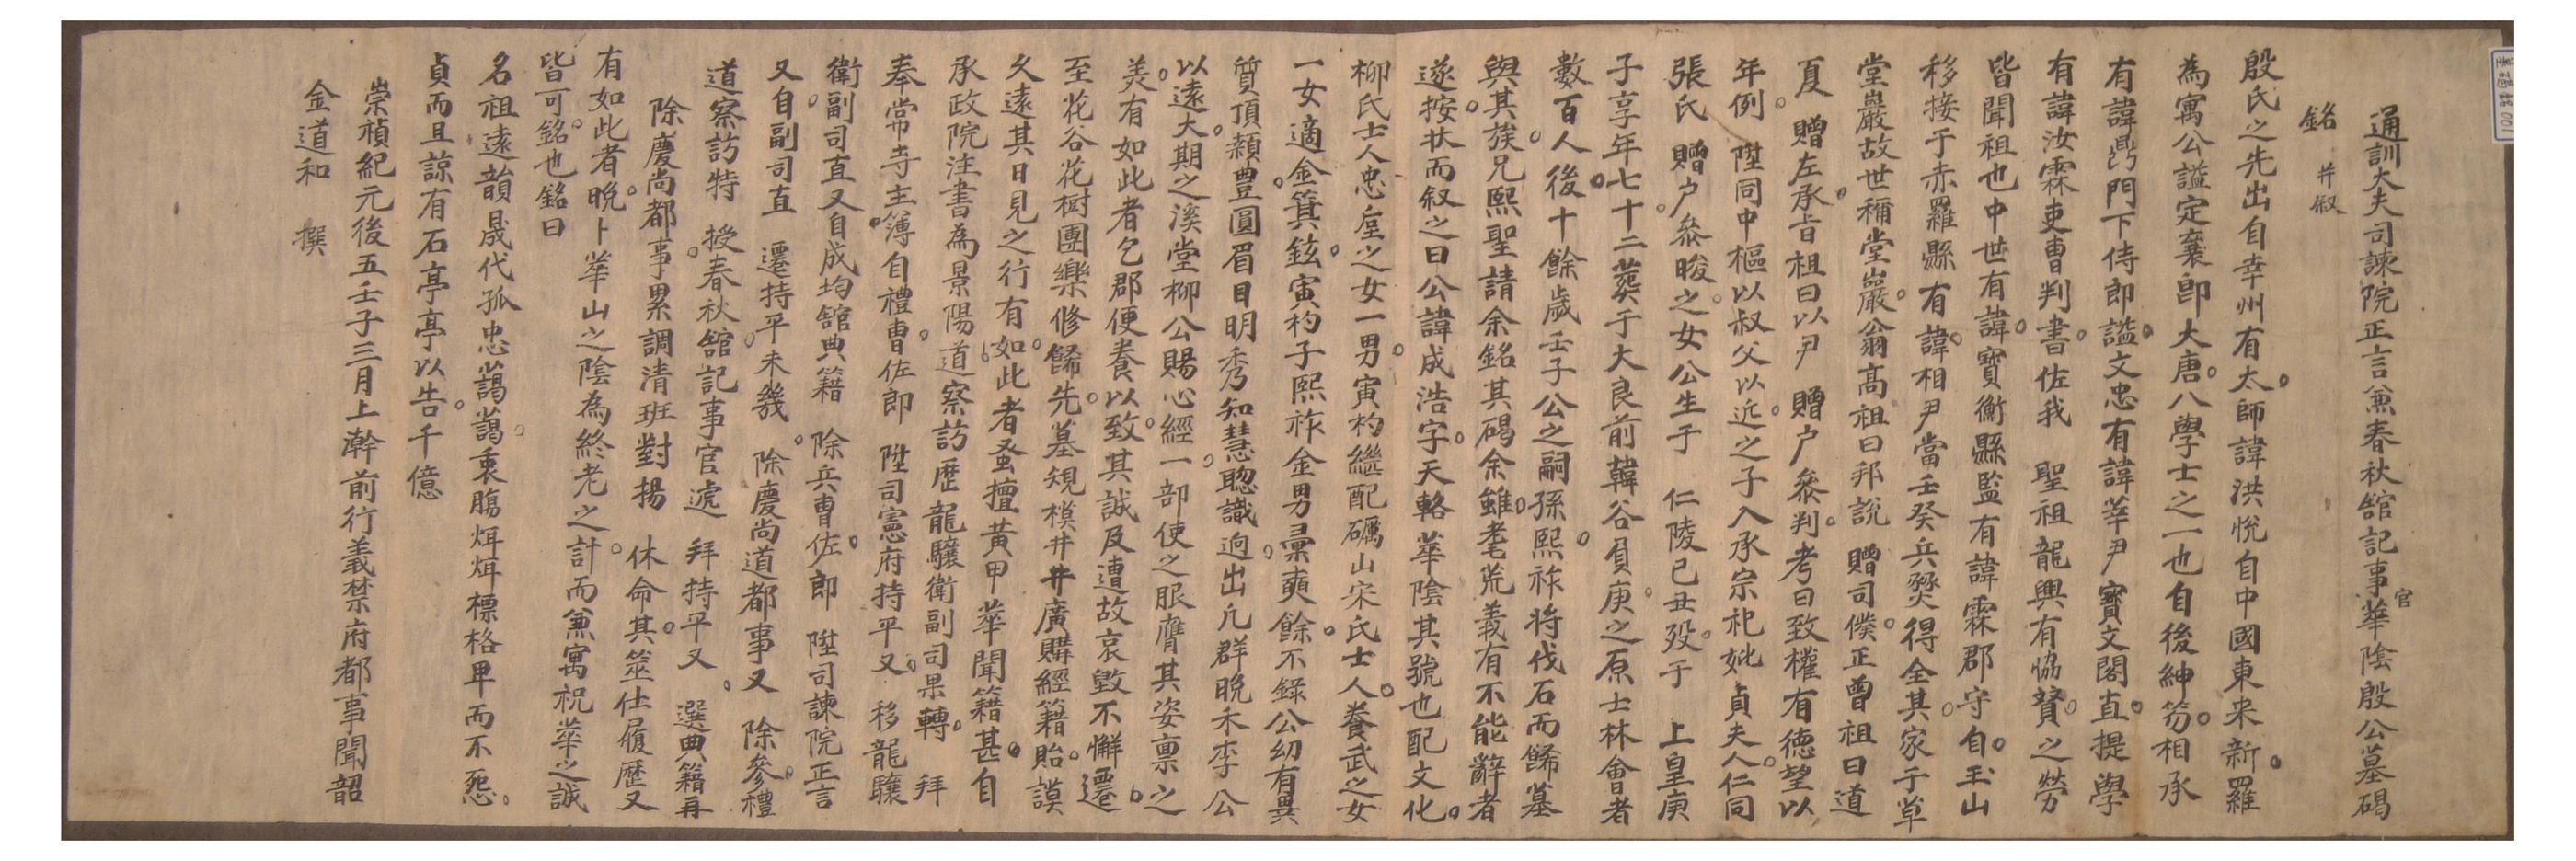 通訓大夫司諫院正言兼春秋館記事官華陰殷公墓碣
銘 并叙
殷氏之先出自幸州有太師諱洪悅自中國東来新羅
為寓公謚定襄卽大唐八學士之一也自後紳笏相承
有諱鼎門下侍郎謚文忠有諱莘尹寶文閣直提學
有諱汝霖吏曹判書佐我 聖祖龍興有恊賛之勞
皆聞祖也中世有諱寶衡縣監有諱霖郡守自玉山
移接于赤羅縣有諱相尹當壬癸兵燹得全其家于草
堂巖故世稱堂巖翁高祖曰邦說 贈司僕正曾祖曰道
夏 贈左承旨祖曰以尹 贈户叅判考曰致權有德望以
年例 陞同中樞以叔父以近之子入承宗祀妣貞夫人仁同
張氏 贈户叅晙之女公生于 仁陵己丑殁于 上皇庚
子享年七十二葬于大良前韓谷負庚之原士林會者
數百人後十餘歲壬子公之嗣孫熙祚将伐石而餙墓
與其族兄熙聖請余銘其碣余雖耄荒義有不能辭者
遂按状而叙之曰公諱成浩字天輅華陰其號也配文化
柳氏士人忠垕之女一男寅杓繼配礪山宋氏士人養武之女
一女適金箕鉉寅杓子熙祚金男彙奭餘不錄公幼有異
質頂顙豊圓眉目明秀知慧聦識逈出凢群晩禾李公
以遠大期之溪堂柳公賜心經一部使之服膺其姿禀之
美有如此者乞郡便養以致其誠及遭故哀毀不懈遷
至花谷花樹團樂修餙先墓規模井井廣購經籍貽謨
久遠其日見之行有如此者蚤擅黃甲華聞籍甚自
承政院注書為景陽道察訪歴龍驤衛副司果轉 拜
奉常寺主簿自禮曹佐郎 陞司憲府持平又 移龍驤
衛副司直又自成均舘典籍 除兵曹佐郎 陞司諫院正言
又自副司直 遷持平未幾 除慶尚道都事又 除參禮
道察訪特 授春秋舘記事官遞 拜持平又 選典籍再
除慶尚都事累調清班對揚 休命其筮仕履歴又
有如此者晩卜華山之陰為終老之計而兼寓祝華之誠
皆可銘也銘曰
名祖遠韻晟代孤忠藹藹衷膓烓烓標格卑而不怨
貞而且諒有石亭亭以告千億
崇禎紀元後五壬子三月上澣前行義禁府都事聞韶
金道和 撰